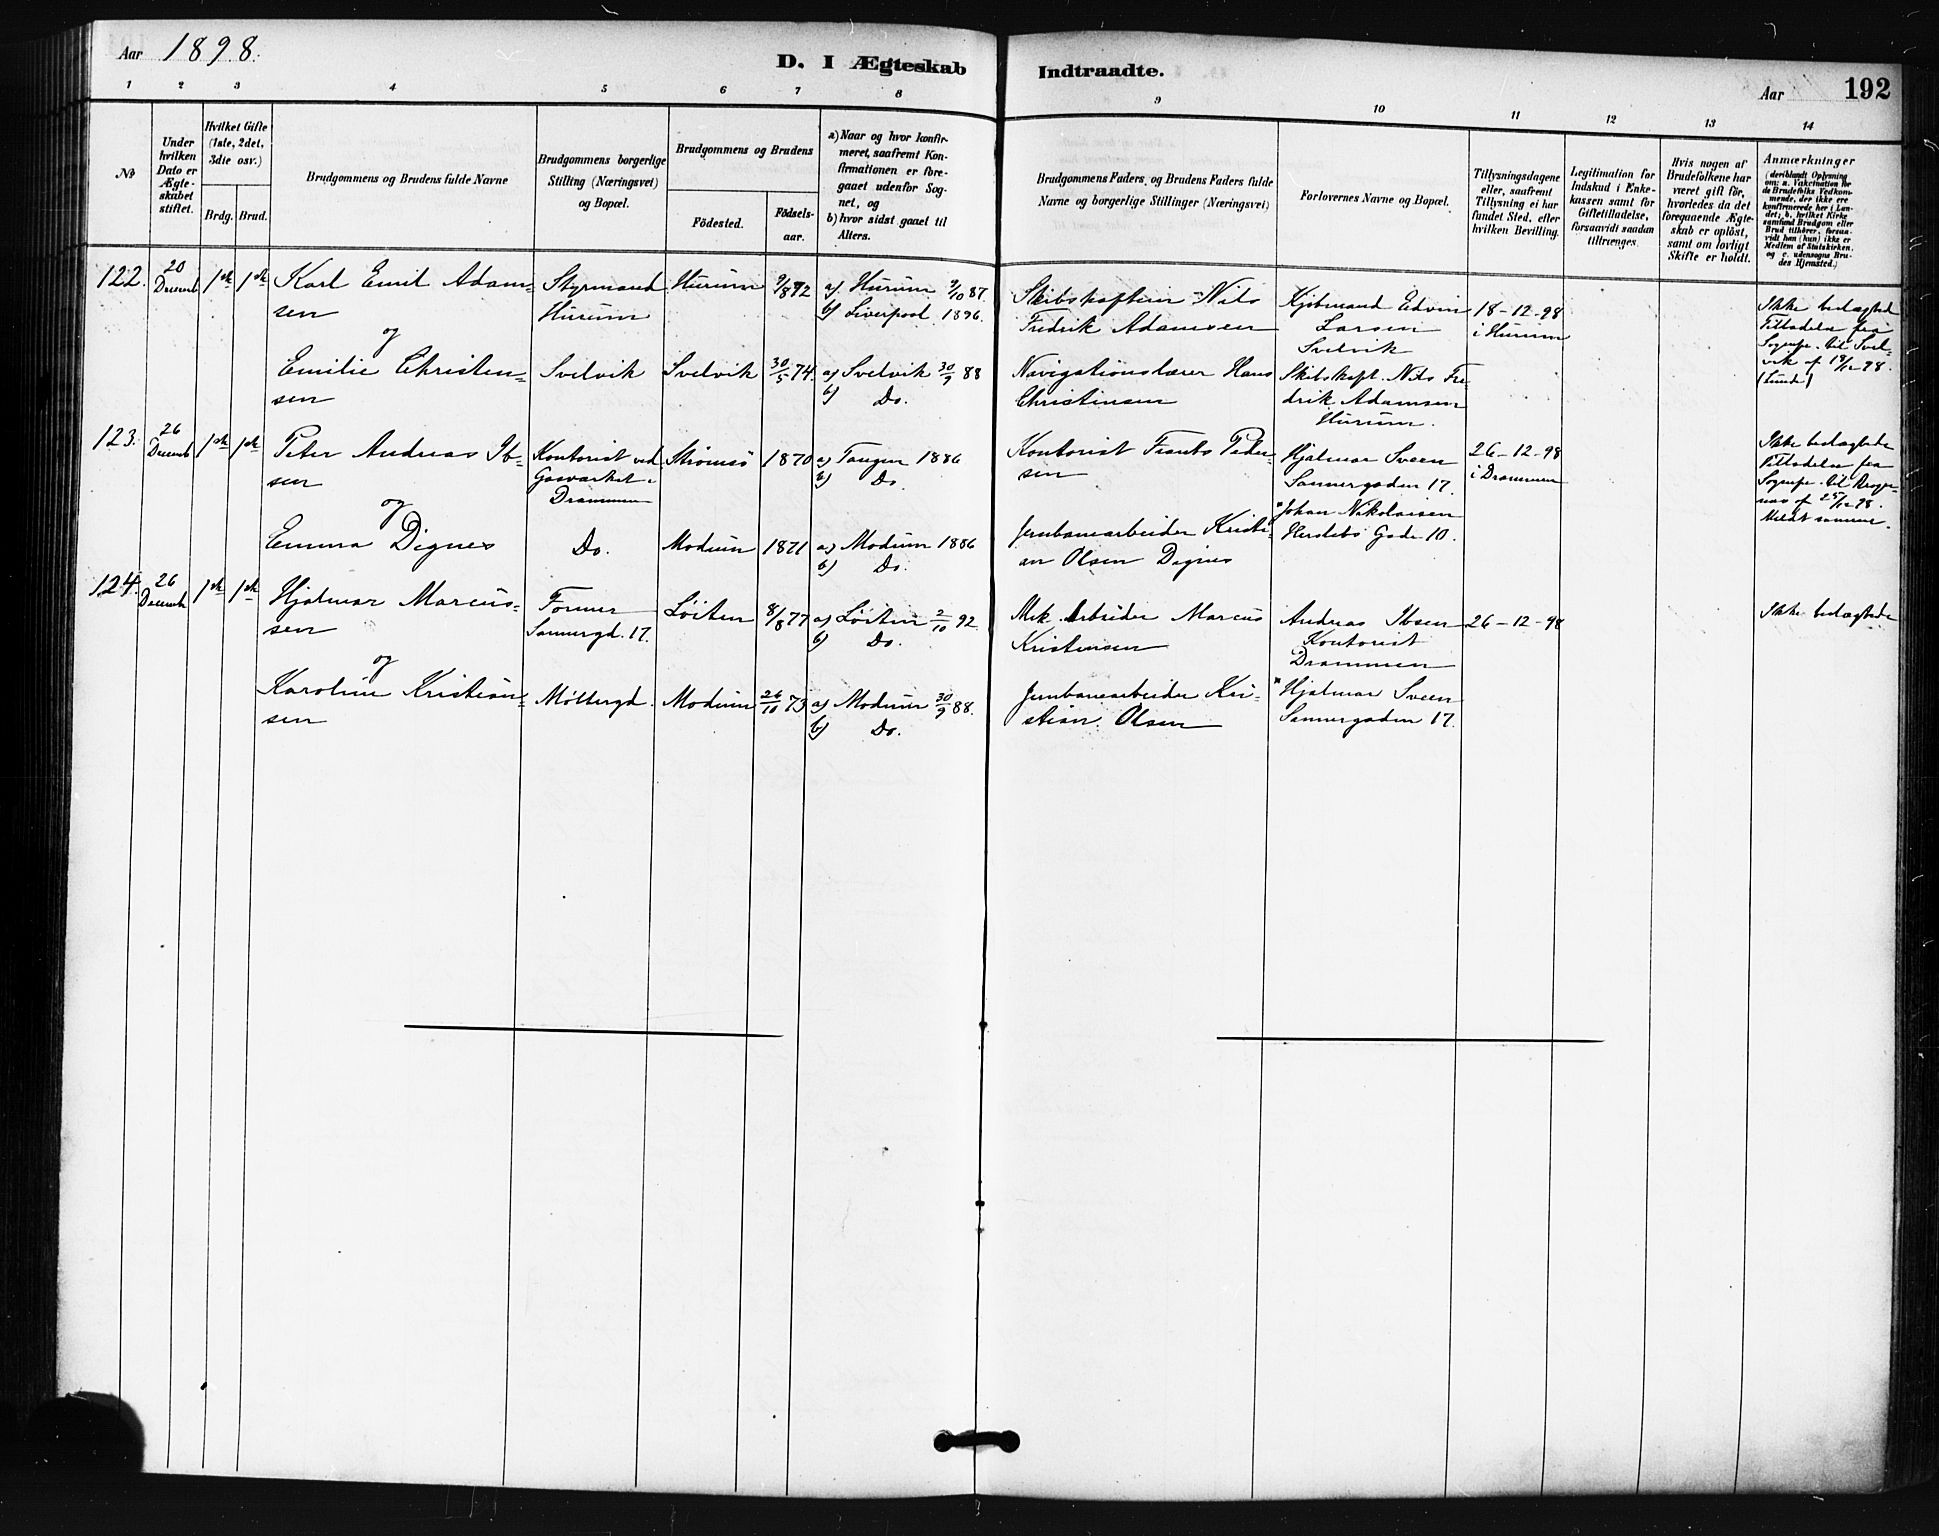 Aar 1898.
D. I Ægteskab
Indtraadte.
Aar 192
1 2 3 4 5 6 7 8
9 10 11 12 13 14
№
Under
hvilken
Dato er
Ægte-
skabet
stiftet.
Hvilket Gifte
(1ste, 2det,
3die osv.)
Brdg. Brud.
Brudgommens og Brudens fulde Navne
Brudgommens borgerlige
Stilling (Næringsvei)
og Bopæl.
Brudgommens og Brudens
Födested.
Födsels-
aar.
a) Naar og hvor konfir-
meret, saafremt Kon-
firmationen er fore-
gaaet udenfor Sog-
net, og
b) hvor sidst gaaet til
Alters.
Brudgommens Faders og Brudens Faders fulde
Navne og borgerlige Stillinger (Næringsvei)
Forlovernes Navne og Bopæl.
Tillysningsdagene
eller, saafremt
Tillysning ei har
fundet Sted, efter
hvilken Bevilling.
Legitimation for
Indskud i Enke-
kassen samt for
Giftetilladelse,
forsaavidt saadan
tiltrænges.
Hvis nogen af
Brudefolkene har
været gift för,
hvorledes da det
foregaaende Ægte-
skab er oplöst,
samt om lovligt
Skifte er holdt.
Anmærkninger
(deriblandt Oplysning
om: a. Vakcination for
de Brudefolks Vedkom-
mende, der ikke ere
konfirmerede her i Lan-
det; b. hvilket Kirke-
samfund Brudgom eller
Brud tilhörer, forsaa-
vidt han (hun) ikke er
Medlem af Statskirken,
og c. udensogns Bru-
des Hjemsted.)
122. 20 Decemb 1ste 1ste Karl Emil Adam-
sen
Styrmand
Hurum
Hurum 9/8 72
a) Hurum 9/10 87.
b) Liverpool 1896.
Skibskaptein Nils
Fredrik Adamsen
Kjøbmand Edvin
Larsen
Svelvik
18-12-98
i Hurum
Ikke beslægtede
Tilladelse fra
Sognepr. til Svel-
vik af 18/12 98.
(Lund)
og
Emilie Christen-
sen
Svelvik Svelvik 30/5 74.
a) Svelvik 30/9 88
b) Do.
Navigationslærer Hans
Christensen
Skibskapt. Nils Fre
drik Adamsen
Hurum.
123. 26 Decemb 1ste 1ste Peter Andreas Ib-
sen
Kontorist ved
Gasværket i
Drammen
Strømsø 1870
a) Tangen 1886
b) Do.
Kontorist Frants Peder-
sen
Hjalmar Sveen
Sannergaden 17.
26-12-98
i Drammen
Ikke beslægtede
Tilladelse fra
Sognepr. til Brager-
næs af 25/12 98.
Meldt samme.
og
Emma Dignes
Do. Modum 1871
a) Modum 1886
b) Do.
Jernbanearbeider Kristi-
an Olsen Dignes
Johan Nikolaisen
Herslebs Gade 10.
124. 26 Decemb 1ste 1ste Hjalmar Marcus-
sen
Former
Sannergd. 17.
Løiten 8/8 77
a) Løiten 2/10 92
b) Do.
Mek. Arbeider Marcus
Kristensen
Andreas Ibsen
Kontorist
Drammen
26-12-98
Ikke beslægtede
og
Karoline Kristian-
sen
Møllergd. Modum 26/10 73
a) Modum 30/9 88.
b) Do.
Jernbanearbeider Kri-
stian Olsen
Hjalmar Sveen
Sannergaden 17.